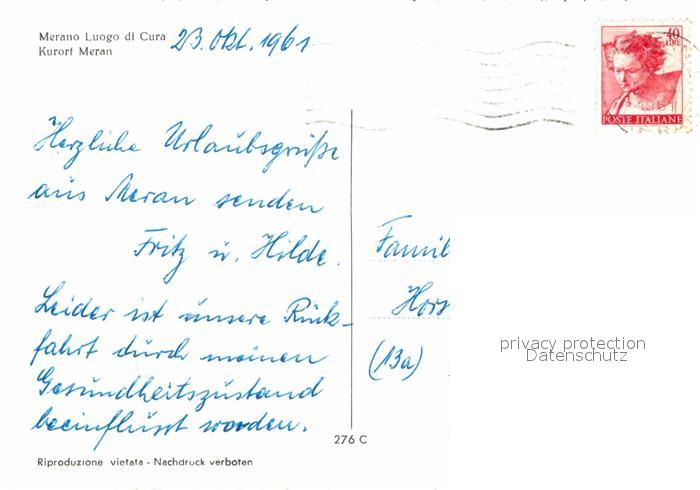 Merano Luogo di Cura
Kurort Meran
23. Okt. 1961
40
LIRE
POSTE ITALIANE
Herzliche Urlaubsgrüße
aus Meran senden
Fritz u. Hilde.
Leider ist unsere Rück-
fahrt durch meinen
Gesundheitszustand
beeinflusst worden.
Famil
Hors
(13a)
privacy protection
Datenschutz
276 C
Riproduzione vietata - Nachdruck verboten